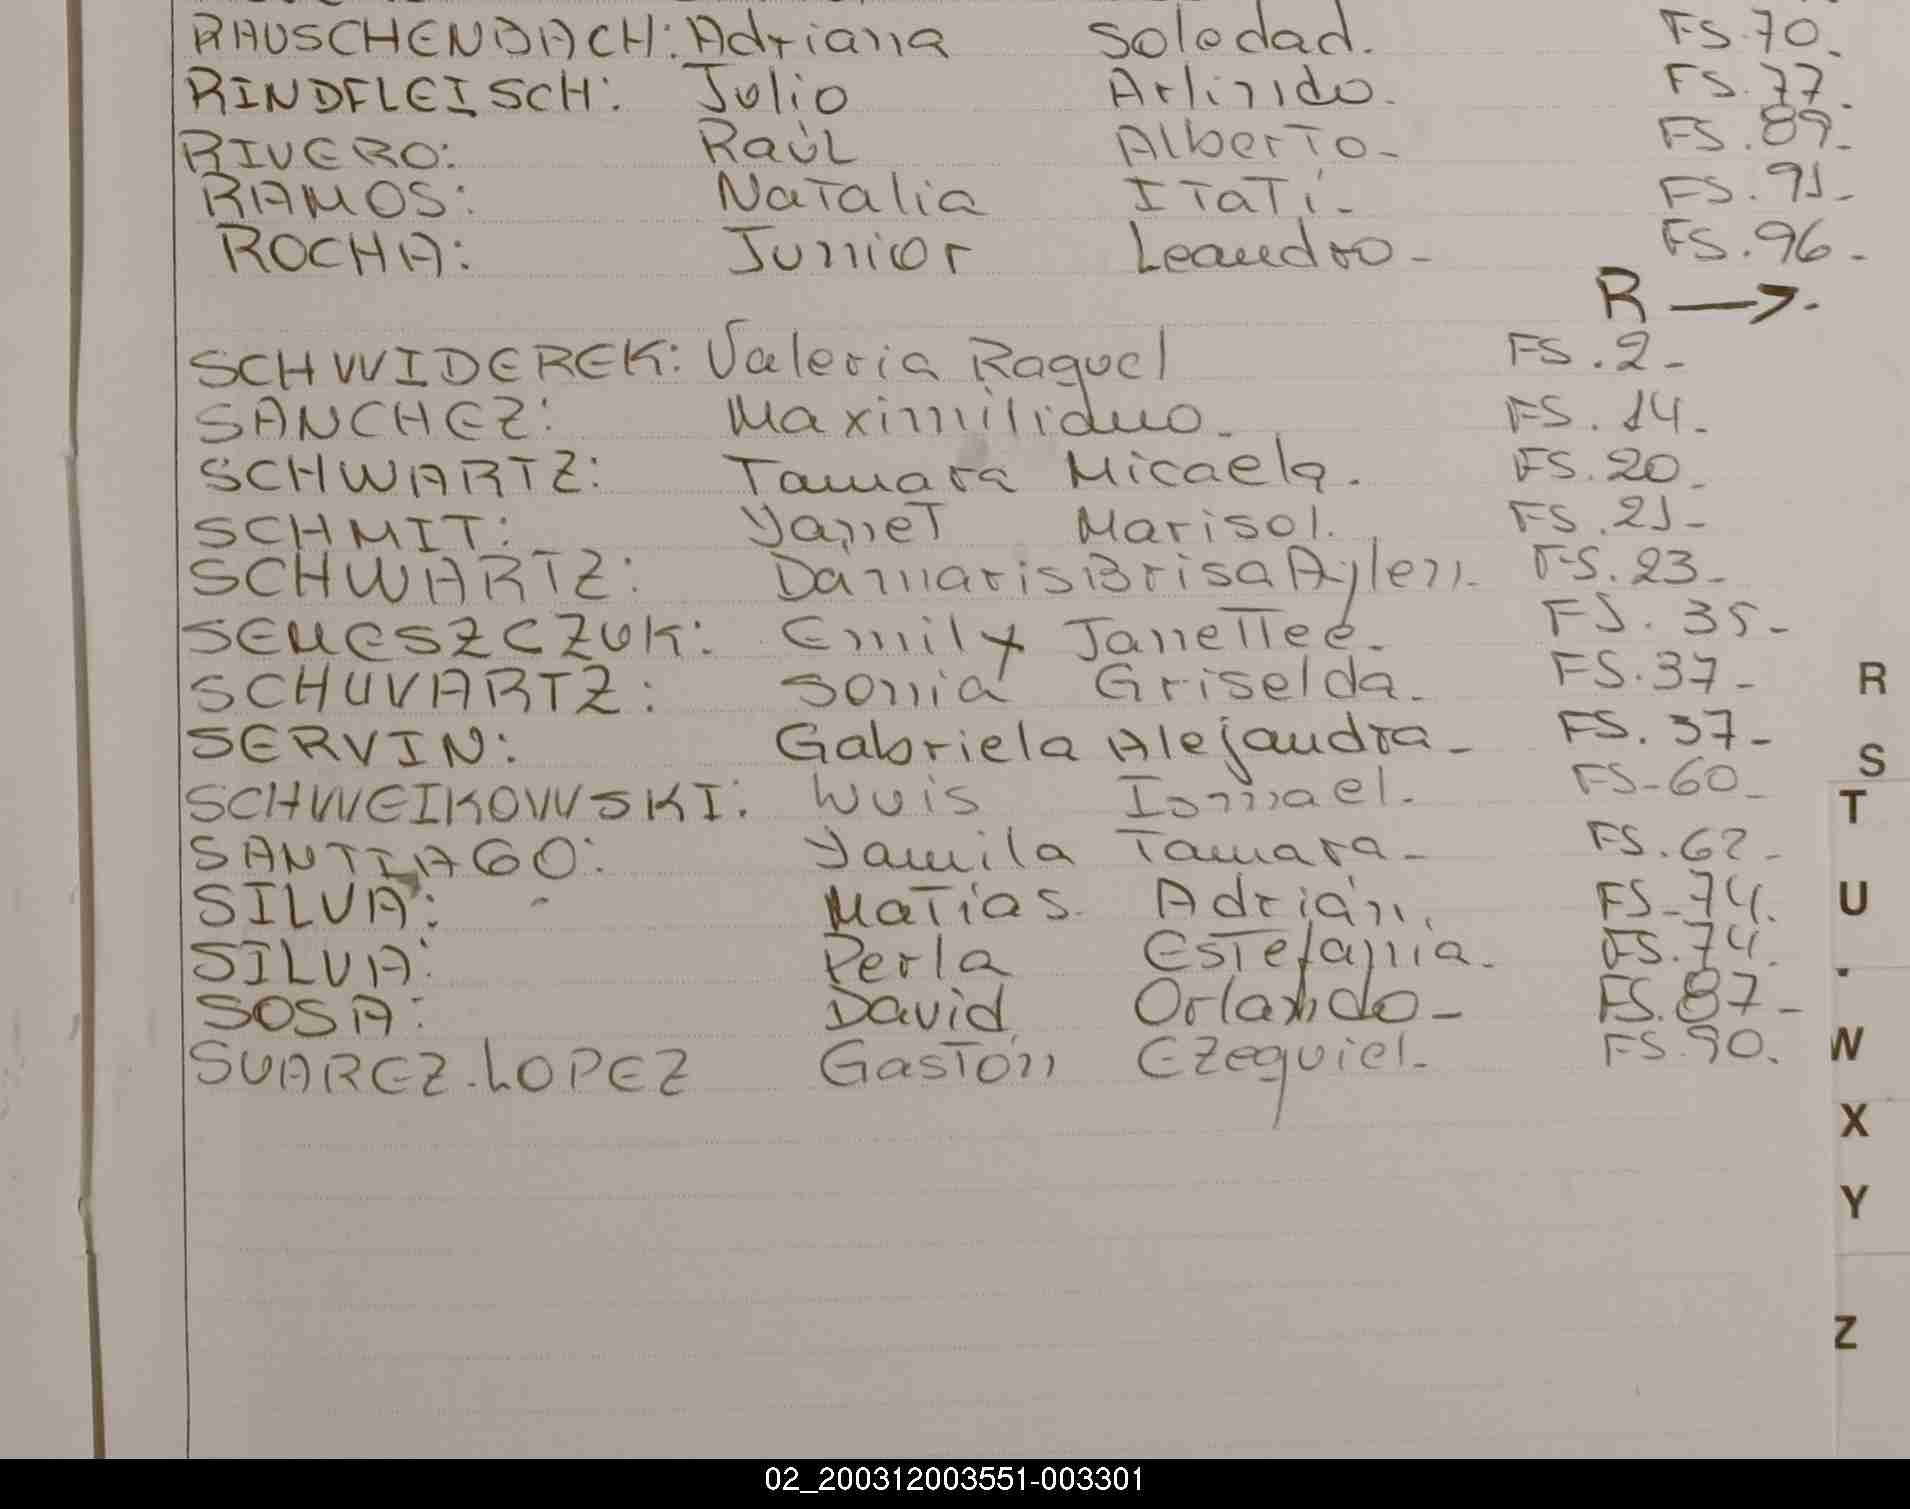 RAUSCHENBACH: Adriana Soledad. FS.70.
RINDFLEISCH: Julio Arlindo. FS.77.
RIVERO: Raúl Alberto- FS.89.
RAMOS: Natalia Itatí- FS.91-
ROCHA: Junior Leandro- FS.96-
R →.
SCHWIDEREK: Valeria Raquel FS.2-
SANCHEZ: Maximiliano- FS.14.
SCHWARTZ: Tamara Micaela. FS.20.
SCHMIT: Yanet Marisol. FS.21-
SCHWARTZ: Damaris Brisa Aylen. FS.23-
SEMESZCZUK: Emily Janettee. FS.35-
SCHUVARTZ: Sonia Griselda. FS.37-
SERVIN: Gabriela Alejandra- FS.37-
SCHWEIKOWSKI: Luis Ismael. FS-60-
SANTIAGO: Yamila Tamara- FS.62-
SILVA: Matías Adrián. FS-74.
SILVA: Perla Estefania. FS.74.
SOSA: David Orlando- FS.87-
SUAREZ.LOPEZ Gastón Ezequiel. FS.90.
R
S
T
U
W
X
Y
Z
02_200312003551-003301